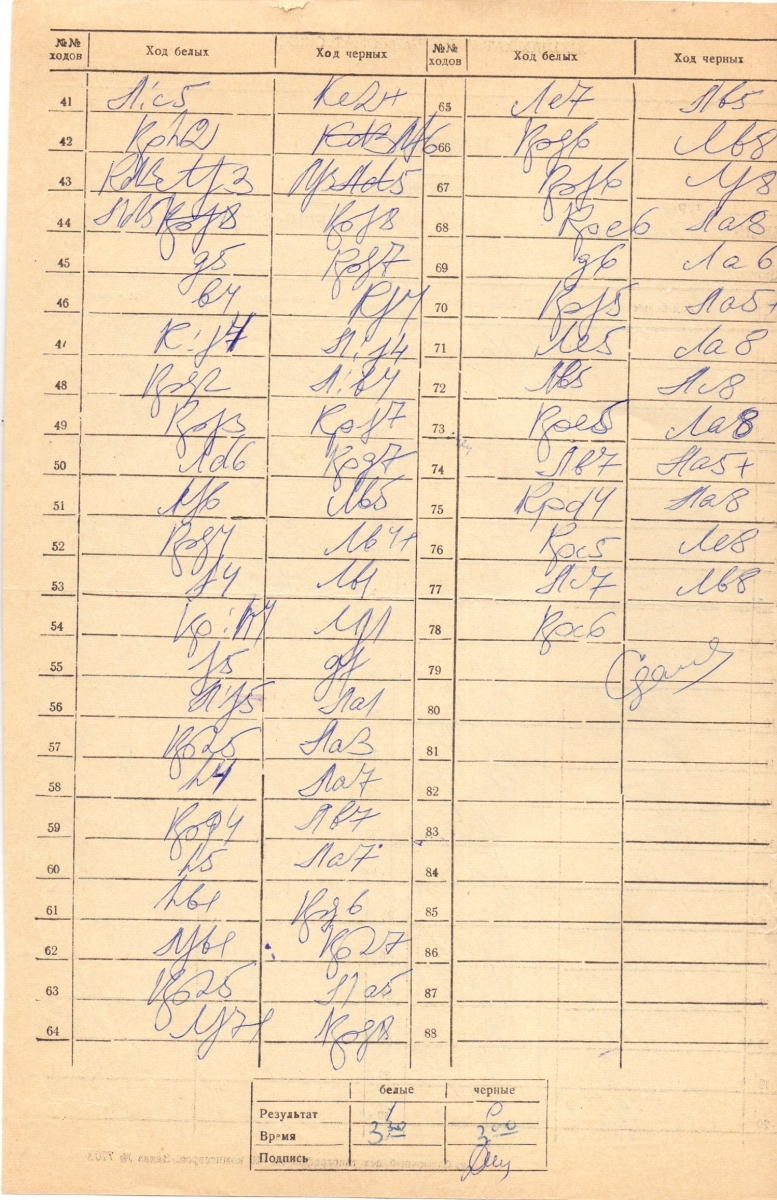 №№ ходов Ход белых Ход черных №№ ходов Ход белых Ход черных
41 Л:c5 Ке2+ 65 Ле7 Лb5
42 Крh2 Лf6 66 Крg6 Лb8
43 67 Крf6 Лf8
44 Крf8 68 Кре6 Ла8
45 g5 Крg7 69 g6 Ла6
46 b4 Кf4 70 Крf5 Ла5+
47 К:f4 Л:f4 71 Ле5 Ла8
48 Крg2 Л:b4 72 Лb5 Лc8
49 Крf3 Крf7 73 Кре5 Ла8
50 Лd6 Крg7 74 Лb7 Ла5+
51 Лf6 Лb5 75 Крd4 Ла8
52 Крg4 Лb4+ 76 Крc5 Ле8
53 f4 Лb1 77 Лc7 Лb8
54 Кр:h4 Лf1 78 Крc6
55 f5 gf 79 Сдался
56 Л:f5 Ла1 80
57 Крg5 Ла3 81
58 h4 Ла7 82
59 Крg4 Лb7 83
60 h5 Ла7 84
61 h6+ Крg6 85
62 Лf6+ Крh7 86
63 Крg5 Ла5 87
64 Лf7+ Крg8 88
белые черные
Результат 1 0
Время 3.30 3.00
Подпись